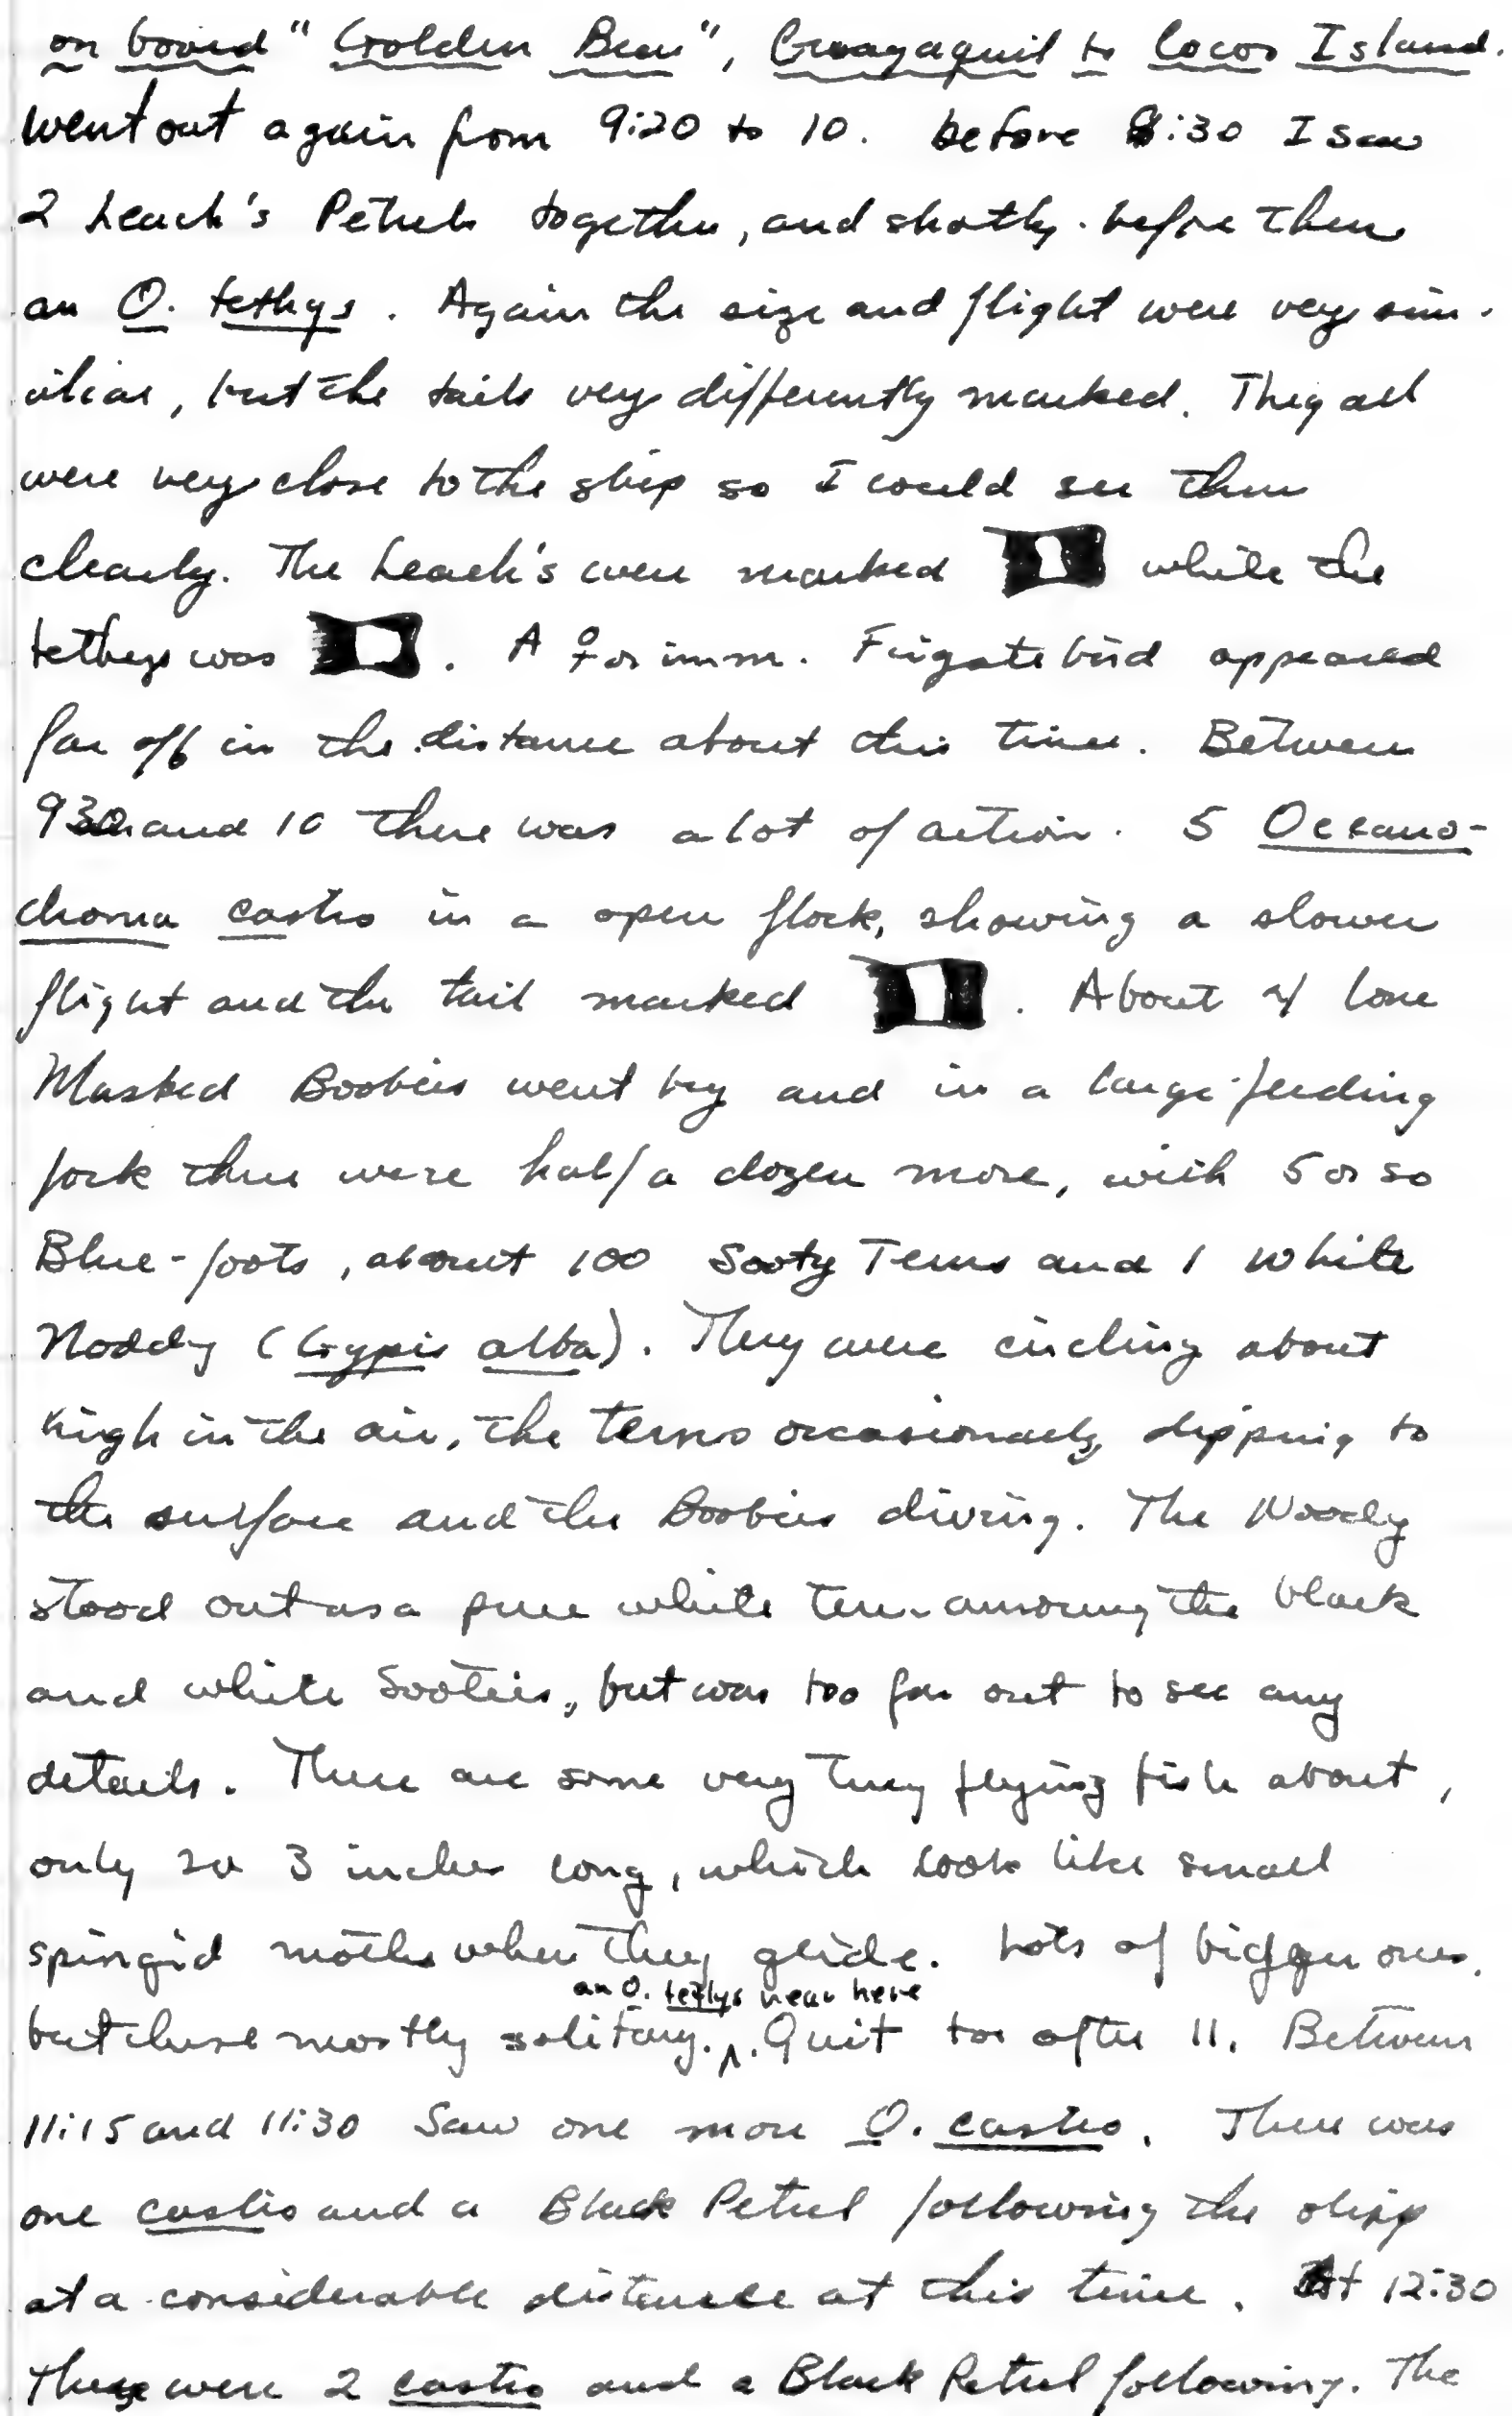 on board "Golden Bear", Guayaquil to Cocos Island.
Went out again from 9:20 to 10. before 9:30 I saw
2 Leach's Petrels together, and shortly before them
an O. tethys. Again the size and flight were very sim-
iliar, but the tails very differently marked. They all
were very close to the ship so I could see them
clearly. The Leach's were marked while the
tethys was . A ♀ or imm. Frigatebird appeared
far off in the distance about this time. Between
930 and 10 there was a lot of action. 5 Oceano-
droma castro in a open flock, showing a slower
flight and the tail marked . About 4 lone
Masked Boobies went by and in a large feeding
flock there were half a dozen more, with 5 or so
Blue-foots, about 100 Sooty Terns and 1 White
Noddy (Gygis alba). They were circling about
high in the air, the terns occasionally dipping to
the surface and the Boobies diving. The Noddy
stood out as a pure white tern among the black
and white Sooties, but was too far out to see any
details. There are some very tiny flying fish about,
only 2 or 3 inches long, which look like small
spingid moths when they glide. Lots of bigger ones,
an O. tethys near here
but these mostly solitary. ∧. Quit for after 11. Between
11:15 and 11:30 saw one more O. castro. There was
one castro and a Black Petrel following the ship
at a considerable distance at this time. At 12:30
there were 2 castro and a Black Petrel following. The